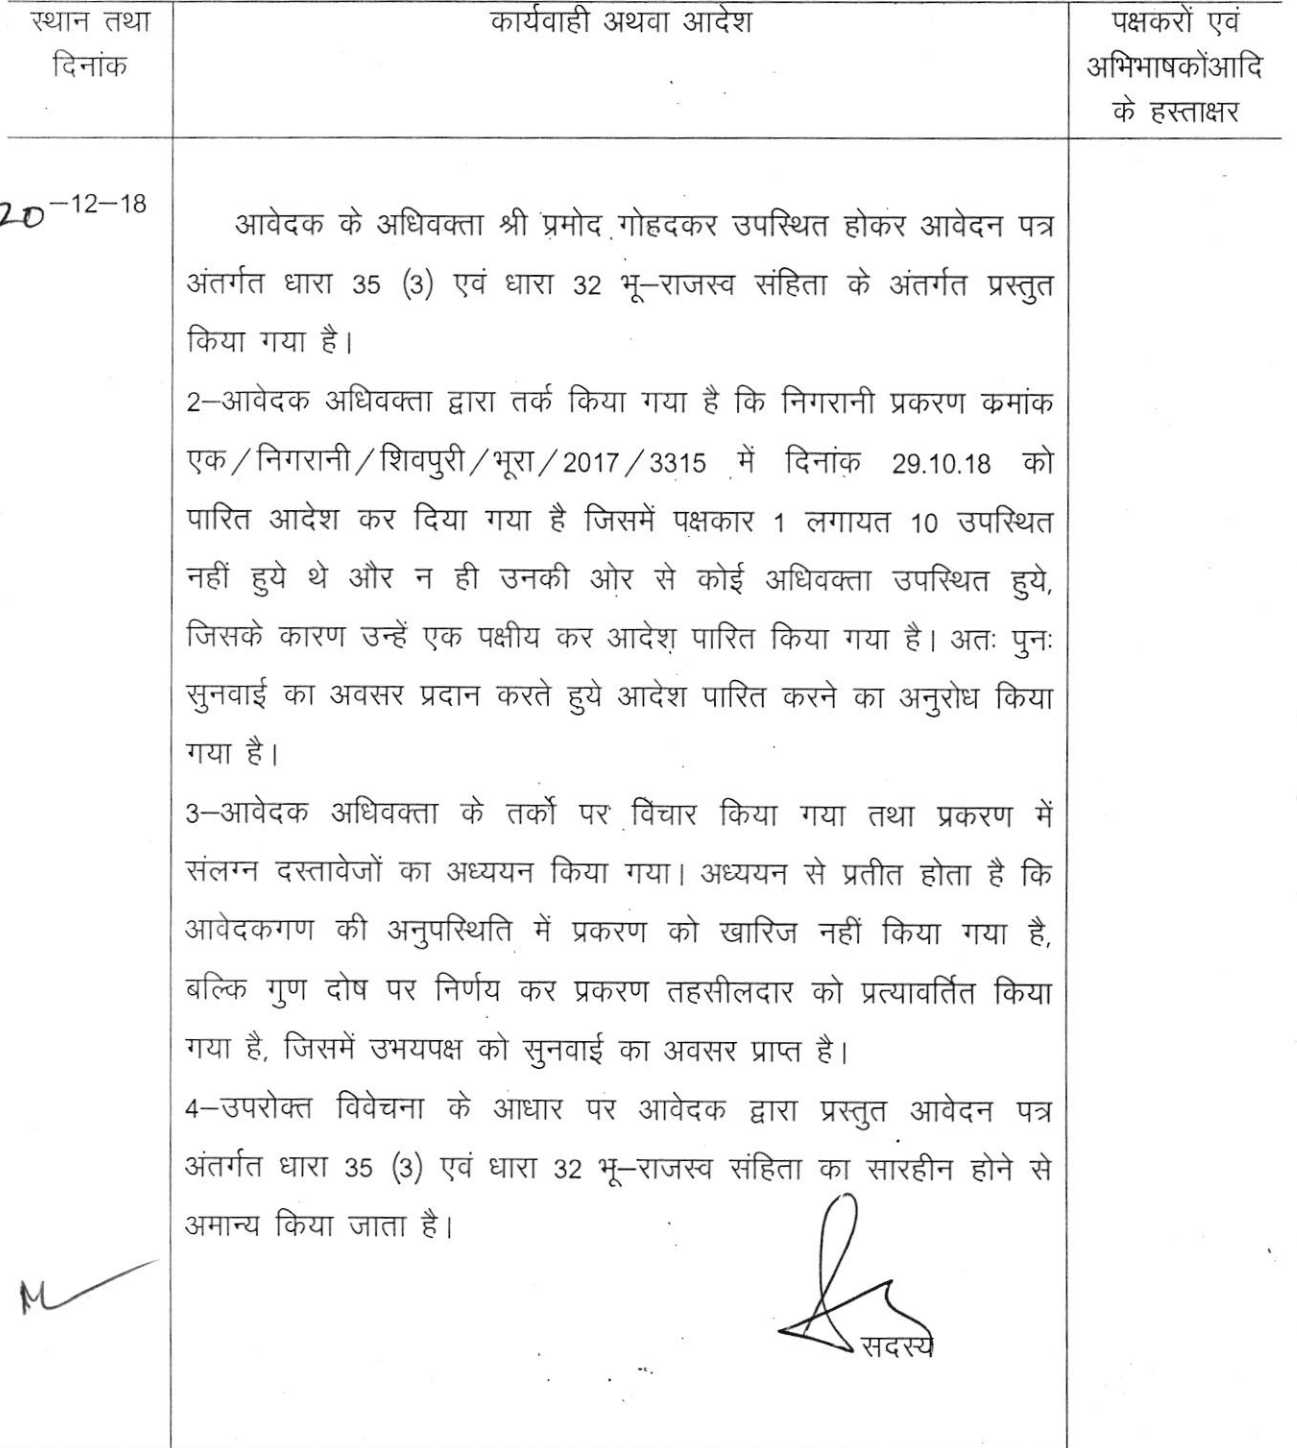 स्थान तथा
दिनांक
कार्यवाही अथवा आदेश
पक्षकरों एवं
अभिभाषकोंआदि
के हस्ताक्षर
20-12-18
आवेदक के अधिवक्ता श्री प्रमोद गोहदकर उपस्थित होकर आवेदन पत्र
अंतर्गत धारा 35 (3) एवं धारा 32 भू–राजस्व संहिता के अंतर्गत प्रस्तुत
किया गया है।
2–आवेदक अधिवक्ता द्वारा तर्क किया गया है कि निगरानी प्रकरण कमांक
एक/निगरानी/शिवपुरी/भूरा/2017/3315 में दिनांक 29.10.18 को
पारित आदेश कर दिया गया है जिसमें पक्षकार 1 लगायत 10 उपस्थित
नहीं हुये थे और न ही उनकी ओर से कोई अधिवक्ता उपस्थित हुये,
जिसके कारण उन्हें एक पक्षीय कर आदेश पारित किया गया है। अतः पुनः
सुनवाई का अवसर प्रदान करते हुये आदेश पारित करने का अनुरोध किया
गया है।
3–आवेदक अधिवक्ता के तर्को पर विचार किया गया तथा प्रकरण में
संलग्न दस्तावेजों का अध्ययन किया गया। अध्ययन से प्रतीत होता है कि
आवेदकगण की अनुपस्थिति में प्रकरण को खारिज नहीं किया गया है,
बल्कि गुण दोष पर निर्णय कर प्रकरण तहसीलदार को प्रत्यावर्तित किया
गया है, जिसमें उभयपक्ष को सुनवाई का अवसर प्राप्त है।
4–उपरोक्त विवेचना के आधार पर आवेदक द्वारा प्रस्तुत आवेदन पत्र
अंतर्गत धारा 35 (3) एवं धारा 32 भू–राजस्व संहिता का सारहीन होने से
अमान्य किया जाता है।
सदस्य